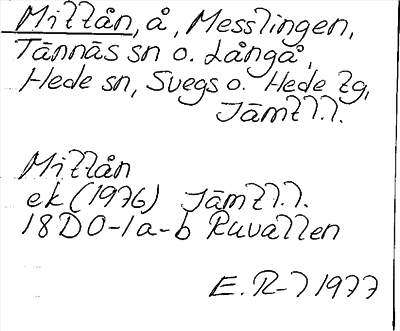 Mittån, å, Messlingen,
Tännäs sn o. Långå,
Hede sn, Svegs o. Hede tg,
Jämtl.l.
Mittån
ek (1976) Jämtl.l.
18D 0-1a-b Ruvallen
E.R-l 1977